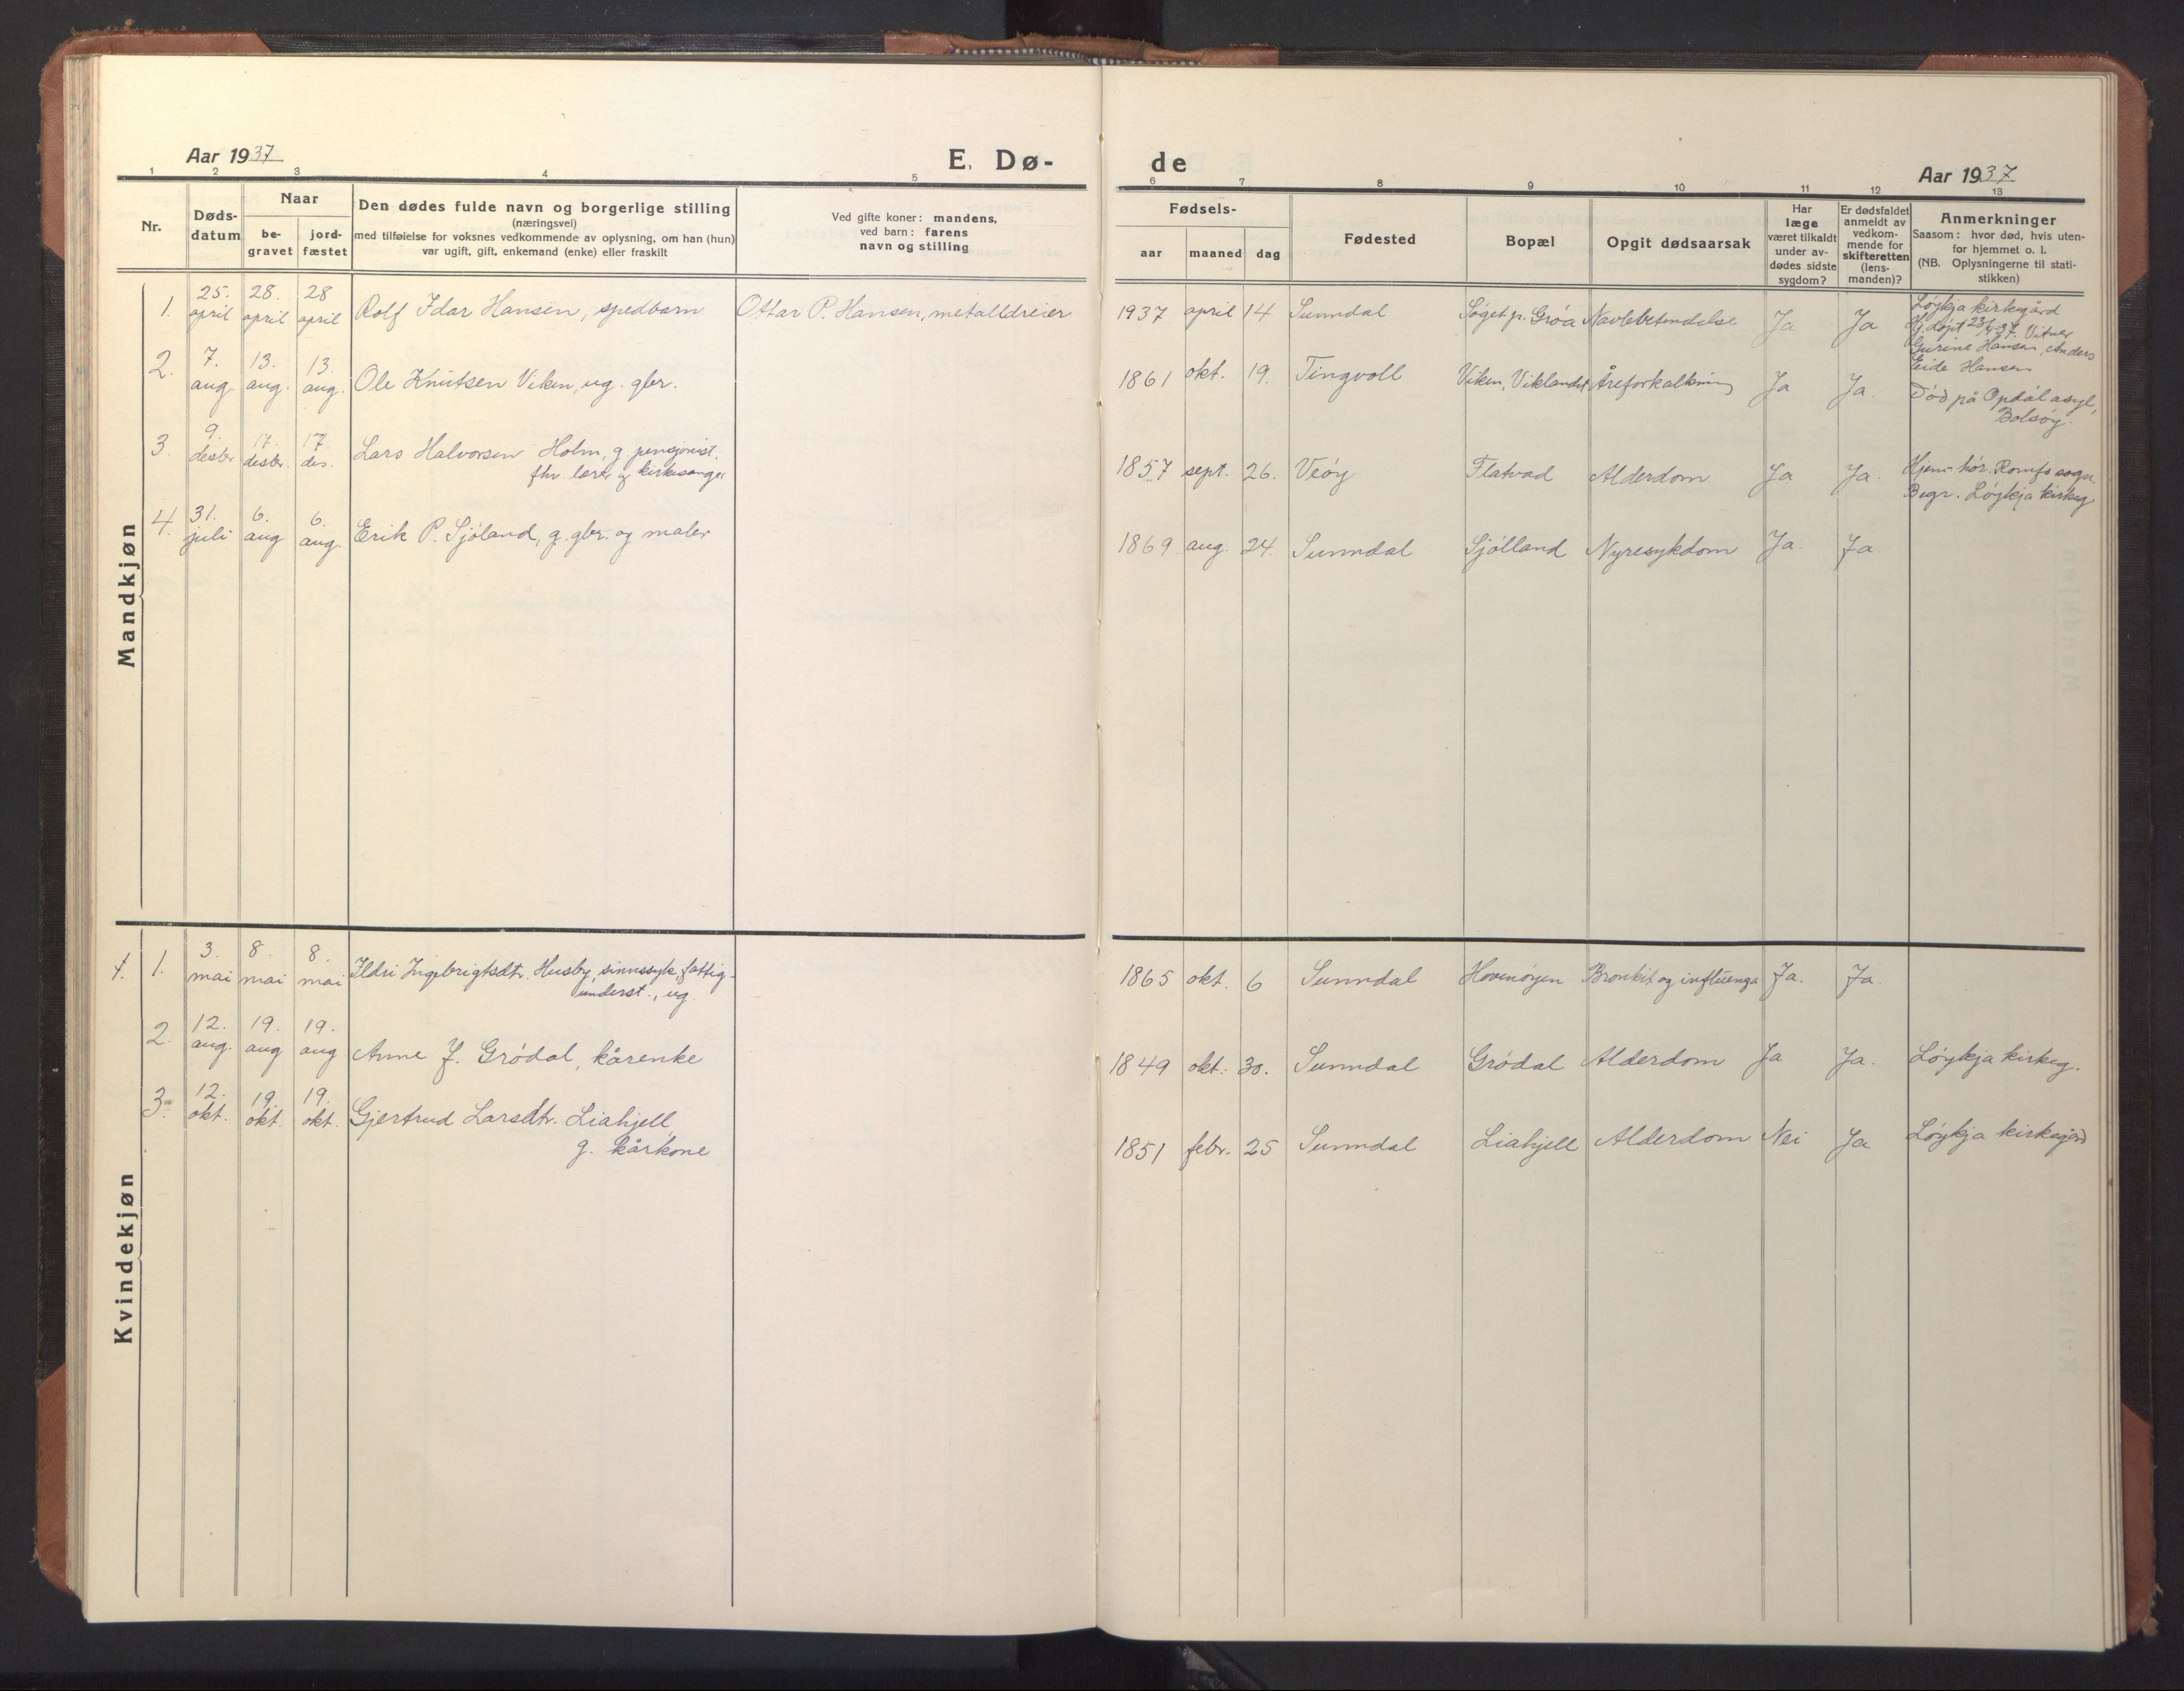 Aar 1937
E. Dø-
1 2 3 4 5
Nr.
Døds-
datum
Naar
be-
gravet
jord-
fæstet
Den dødes fulde navn og borgerlige stilling
(næringsvei)
med tilføielse for voksnes vedkommende av oplysning, om han (hun)
var ugift, gift, enkemand (enke) eller fraskilt
Ved gifte koner: mandens,
ved barn: farens
navn og stilling
Mandkjøn
1. 25. april 28. april 28 april Rolf Idar Hansen, spedbarn Ottar P. Hansen, metalldreier
2. 7. aug 13. aug. 13. aug. Ole Knutsen Viken, ug. gbr.
3. 9. desbr 17. desbr. 17. des. Lars Halvorsen Holm, g. pensjonist,
fhv. lærer og kirkesanger
4. 31. juli 6. aug 6. aug. Erik P. Sjøland, g. gbr. og maler
Kvindekjøn
1. 3. mai 8. mai 8. mai Ildri Ingebrigtsdtr. Husby, sinnssyk, fattig-
underst., ug.
2. 12. aug. 19. aug 19. aug Anne J. Grødal, kårenke
3. 12. okt. 19. okt. 19. okt. Gjertrud Larsdtr. Liahjell
g. kårkone
de
Aar 1937
6 7 8 9 10 11 12 13
Fødsels-
aar maaned dag
Fødested
Bopæl
Opgit dødsaarsak
Har
læge
været tilkaldt
under av-
dødes sidste
sygdom?
Er dødsfaldet
anmeldt av
vedkom-
mende for
skifteretten
(lens-
manden)?
Anmerkninger
Saasom: hvor død, hvis uten-
for hjemmet o. l.
(NB. Oplysningerne til stati-
stikken)
1937 april 14 Sunndal Søget p. Grøa Navlebetendelse Ja Ja Løykja kirkegård
Hj.døpt 23/4-37. Vitner
Gurine Hansen, Anders
Eide Hansen
1861 okt. 19. Tingvoll Viken, Viklandet Åreforkalkning Ja Ja. Død på Opdøl asyl,
Bolsøy.
1857 sept. 26. Veøy Flatvad Alderdom Ja Ja. Hjem-hør. Romfo sogn.
Begr. Løykja kirkeg.
1869 aug. 24. Sunndal Sjølland Nyresykdom Ja Ja
1865 okt. 6 Sunndal Hovenøyen Bronkit og influenza Ja. Ja.
1849 okt. 30. Sunndal Grødal Alderdom Ja Ja. Løykja kirkeg.
1851 febr. 25 Sunndal Liahjell Alderdom Nei Ja Løykja kirkegård